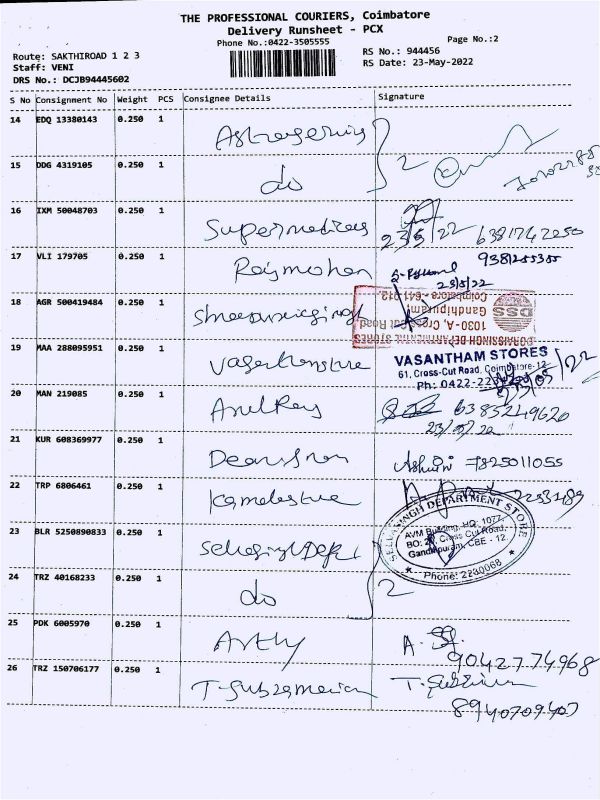 THE PROFESSIONAL COURIERS, Coimbatore
Delivery Runsheet - PCX
Phone No.:0422-3505555
Page No.:2
Route: SAKTHIROAD 1 2 3
Staff: VENI
DRS No.: DCJB94445602
RS No.: 944456
RS Date: 23-May-2022
S No Consignment No Weight PCS Consignee Details Signature
14 EDQ 13380143 0.250 1
2
15 DDG 4319105 0.250 1 do
16 IXM 50048703 0.250 1 Supermedicas 23/5/22 6381742250
17 VLI 179705 0.250 1 Rajmohan
23/5/22
18 AGR 500419484 0.250 1
DORAISINGH DEPARTMENTAL STORES
1030-A, Cross Cut Road,
Gandhipuram,
Coimbatore - 641 012.
DSS
19 MAA 288095951 0.250 1
VASANTHAM STORES
61, Cross-Cut Road, Coimbatore-12
Ph: 0422-
20 MAN 219085 0.250 1 6385249620
21 KUR 608369977 0.250 1 7825011055
22 TRP 6806461 0.250 1
23 BLR 5250890833 0.250 1
SELVASINGH DEPARTMENT STORE
AVM Building, HO: 1077,
Cross Cut Road,
Gandhipuram, CBE - 12.
Phone: 2230068
24 TRZ 40168233 0.250 1 do 2
25 PDK 6005970 0.250 1 A.
9042774968
26 TRZ 150706177 0.250 1 T.
8940709403